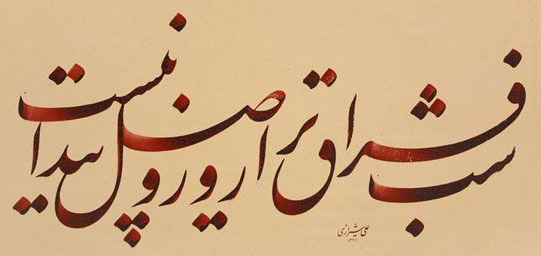 شب فراق ترا روز وصل پیدا نیست
علی شیرازی